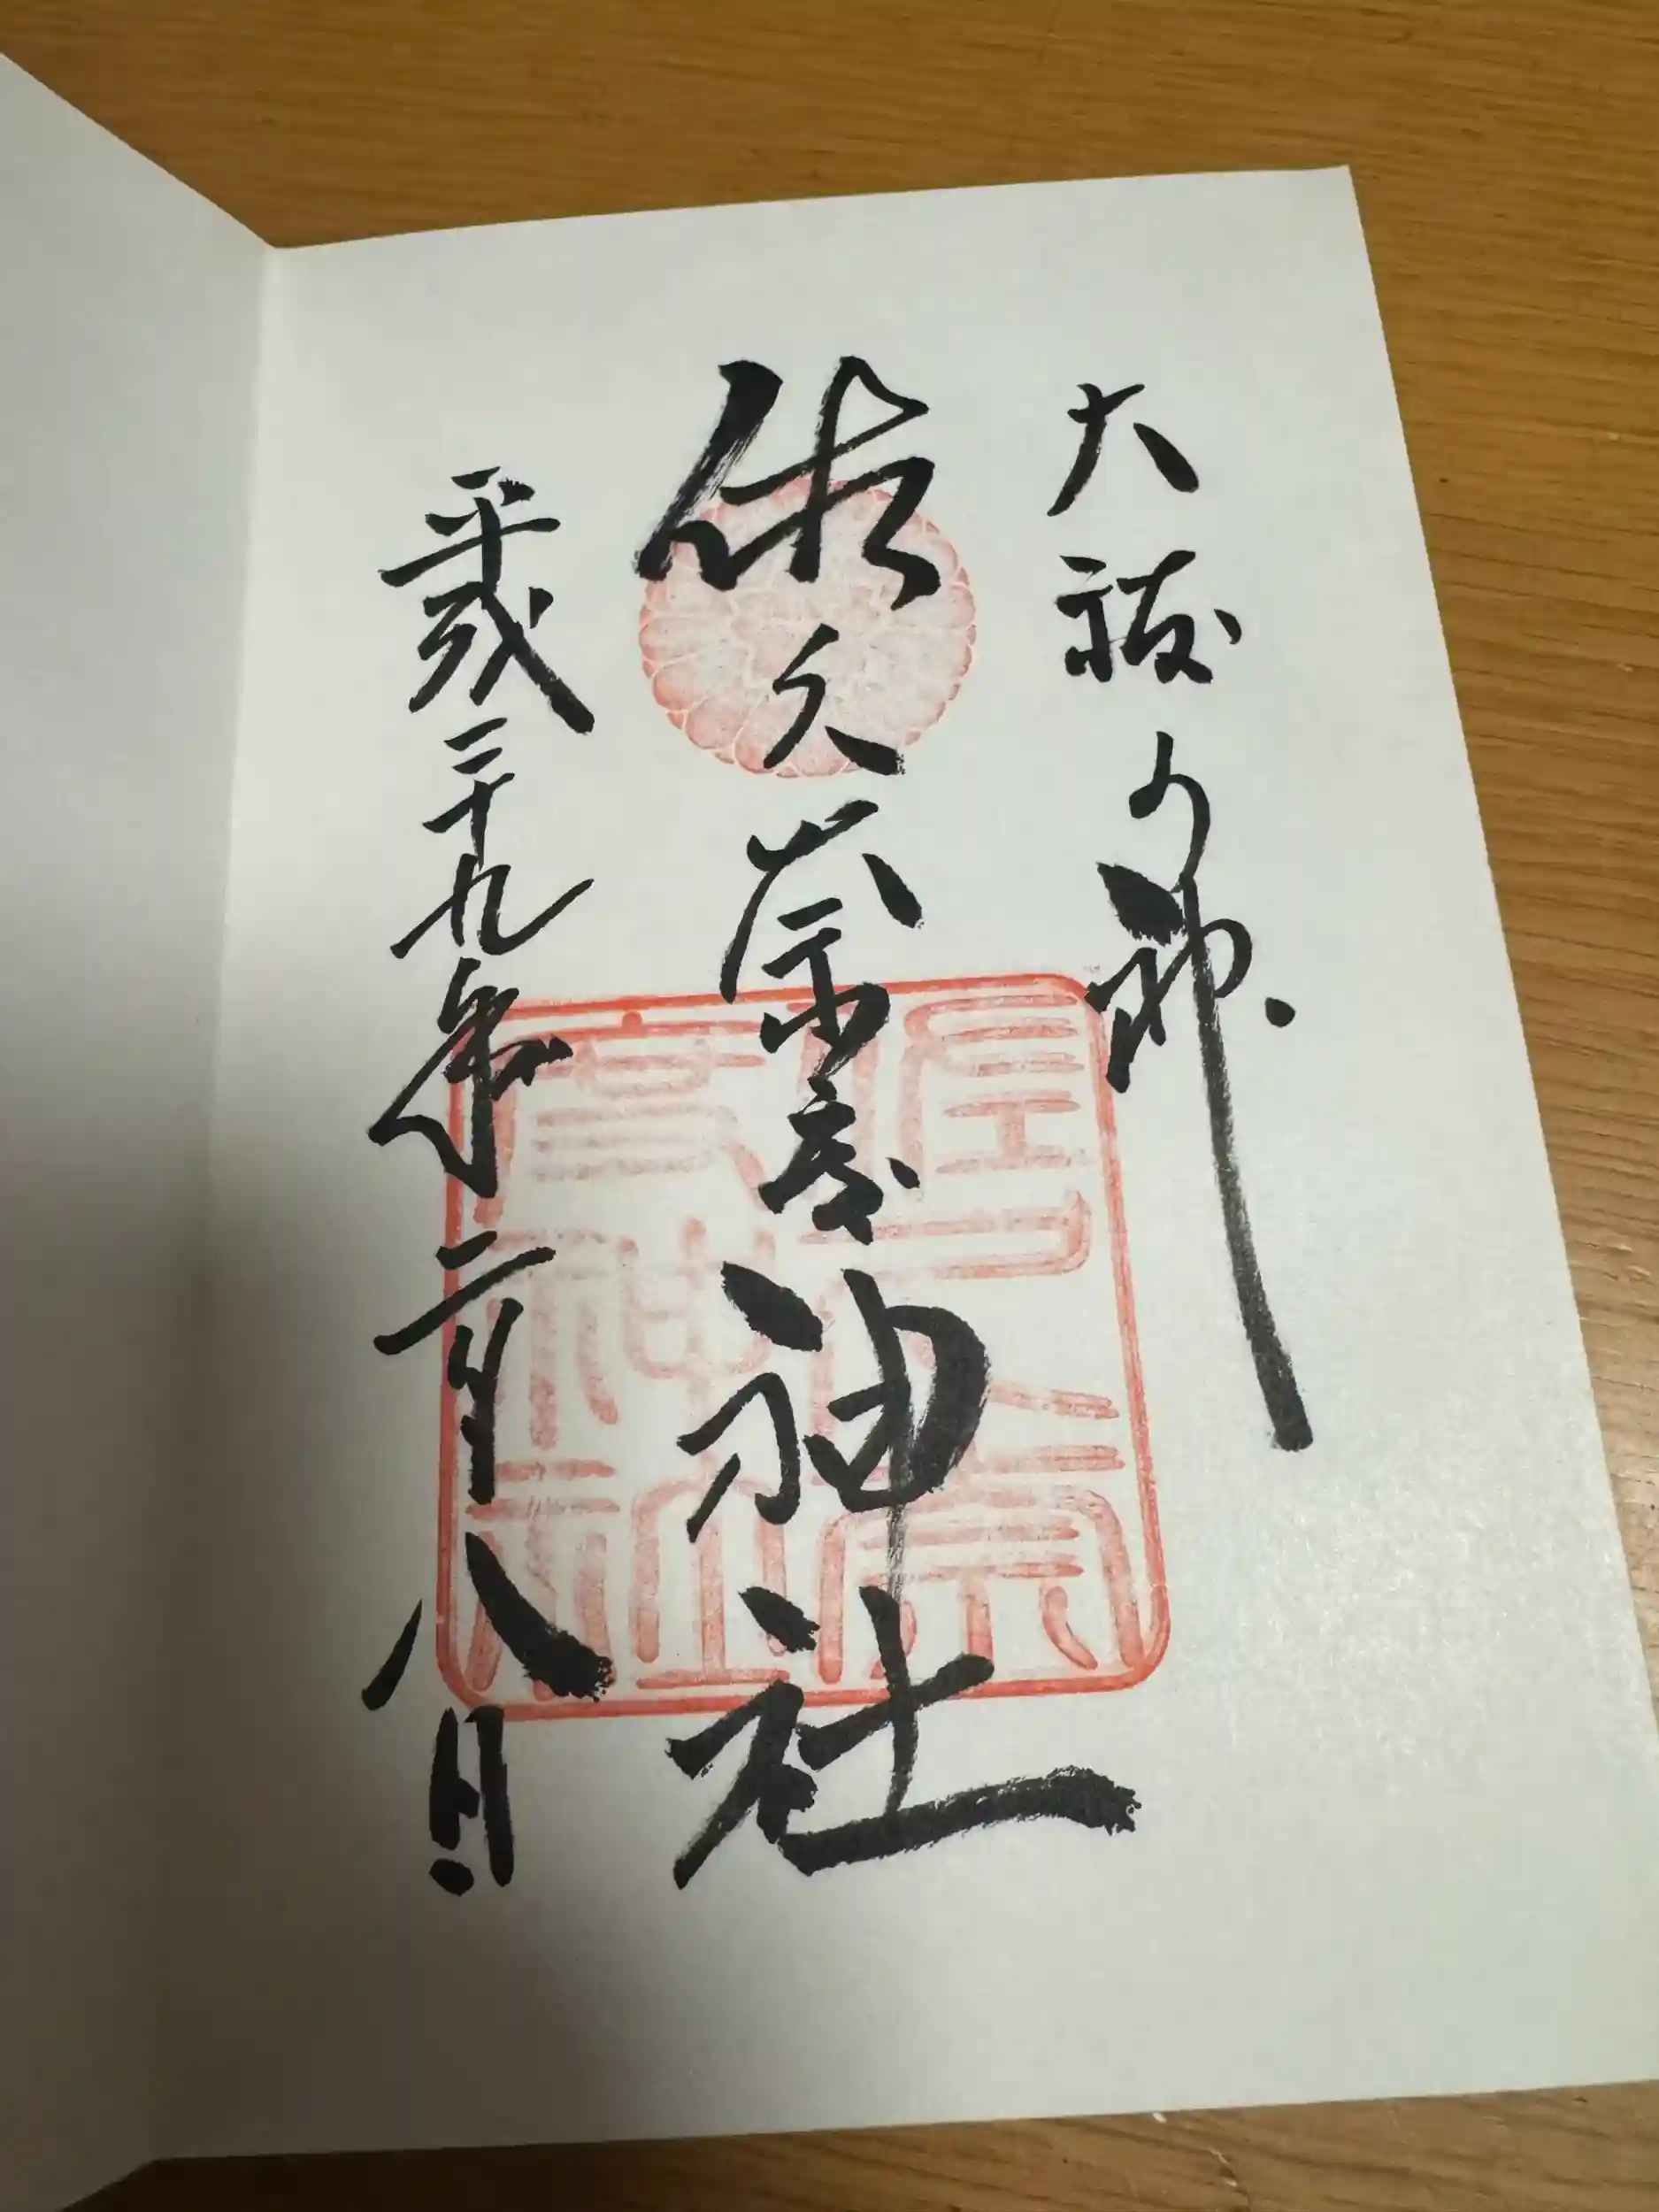 大祓の神
佐久奈度神社
平成二十九年二月八日
佐久奈
度神社